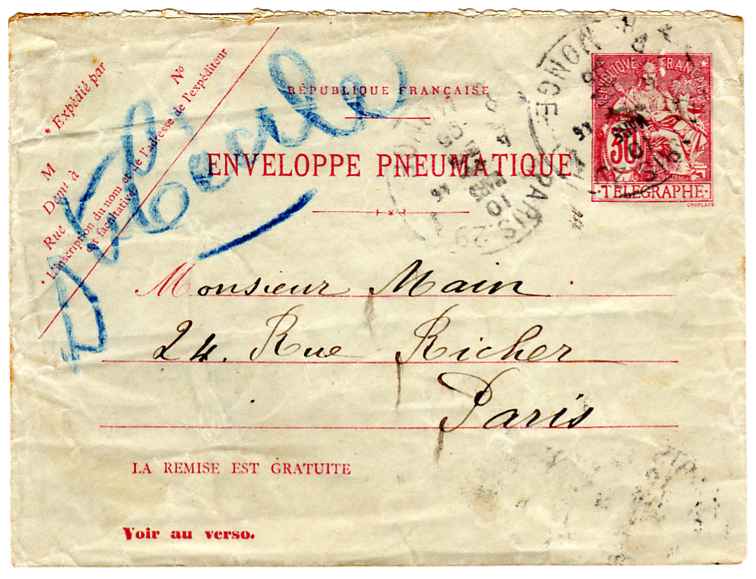 * Expédié par
N°
M
Dem! à
Rue
* L'inscription du nom et de l'adresse de l'expéditeur
est facultative.
RÉPUBLIQUE FRANÇAISE
ENVELOPPE PNEUMATIQUE
RÉPUBLIQUE FRANÇAISE
30
TÉLÉGRAPHE
CHAPLAIN
PARIS 29
10
MARS
Monsieur Main
24. Rue Richer
Paris
LA REMISE EST GRATUITE
Voir au verso.